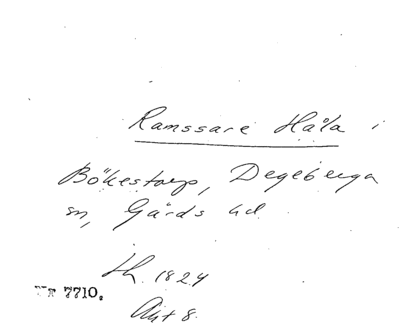 Ramssare Håla i
Bökestorp, Degeberga
sn, Gärds hd.
Lh. 1824
7710.
Akt 8.